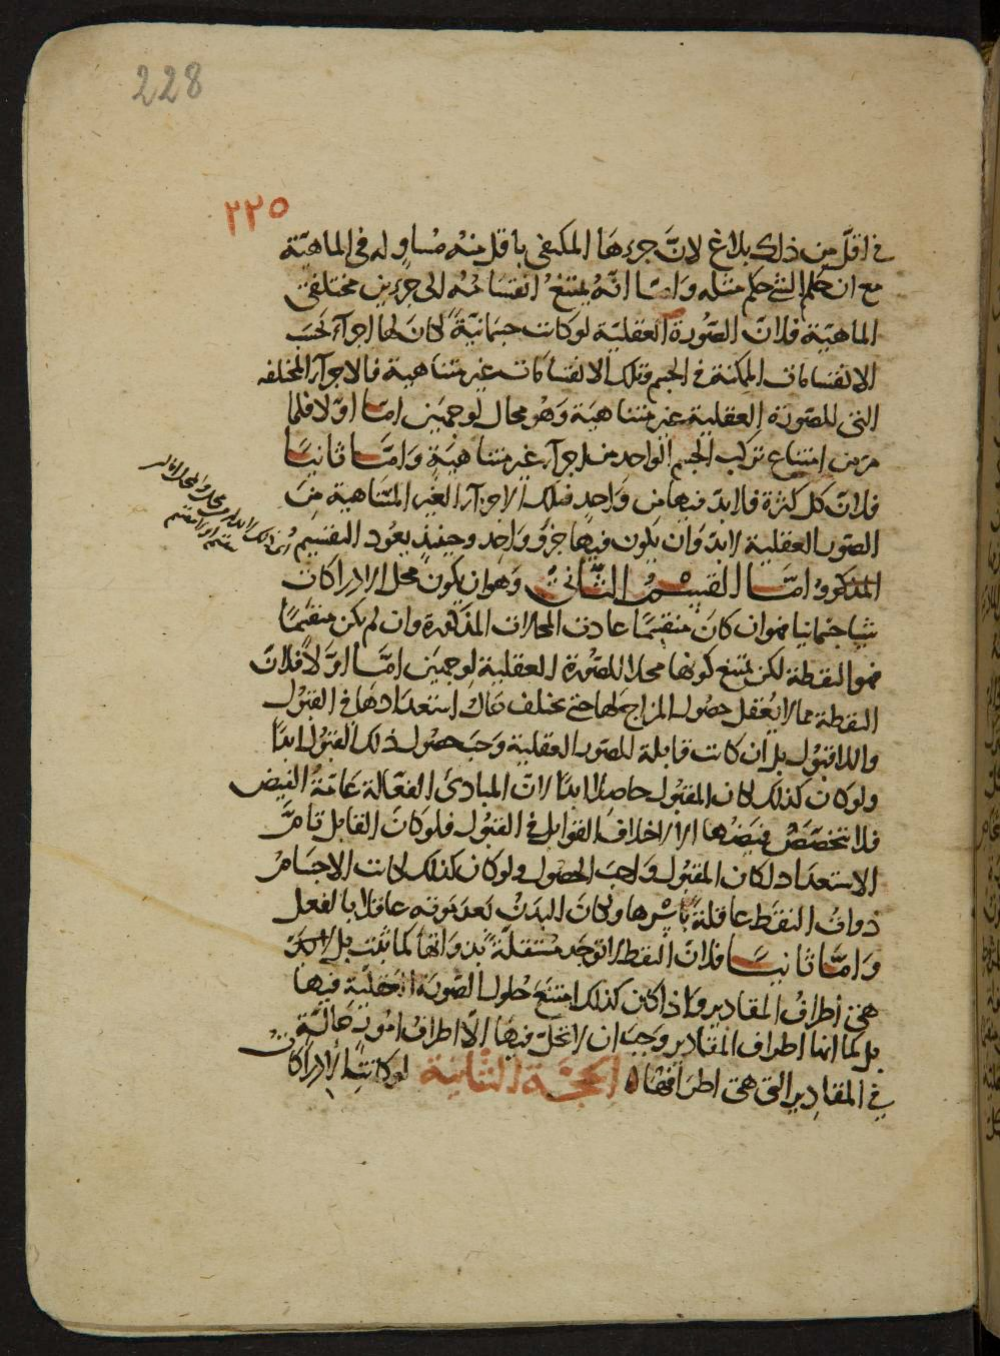 228
٢٢٥
في اقل من ذلك بلاغ لانّ جزءها المكتفى باقل منه مساوٍ له في الماهيّة
مع ان حكم الشئ حكم مثله وامّا انّه يمتنع انقسامه الى جزءين مختلفي
الماهيّة فلانّ الصّورة العقليّة لو كانت جسمانيّة لكان لها اجزآء بحسب
الانقسامات الممكنة في الجسم وتلك الانقسامات غير متناهية فالاجزآء المختلفه
التى للصّورة العقلية غير متناهيَة وَهُو محال لوجهَين امّا اوّلا فلما
مرّ من امتناع تركب الجسم الواحد من اجزآء غير متناهيَةٍ وَامّا ثانيًا
فلانّ كل كثرة فلا بدّ فيها من وَاحدٍ فتلك الاجزآء الغير المتناهية منَ
الصّور العقلية لا بدّ وَان يكون فيها جزؤٌ وَاحد وحينئذ يعود التقسيم
المذكور وامّا القسم الثّاني وَهو ان يكون محل الادراكات
شيئا جسمانيا فهو ان كانَ منقسمًا عادت المحالات المذكورة وان لم يكن منقسمًا
فهو النقطة لكن يمتنع كونها محلا للصّورة العقلية لوجهين امّا اوّلا فلانّ
النقطة مما لا يُعقل حصول المزاج لها حتى يختلف حَال استعدادهَا في القبُول
واللا قبُول بل ان كانت قابلة للصّور العقلية وَجبَ حصُول ذلك القبُول ابدًا
ولو كان كذلك لكان المقبُول حاصلا ابدًا لانّ المبادئ الفعّالة عَامّة الفيض
فلا تخصّصُ فيضُها الا لاختلاف القوابل في القبُول فلو كانَ القابل تامَّ
الاستعدَاد لكان المقبُول وَاجبَ الحصُول ولو كان كذلك لكانت الاجسَامُ
ذوات النقَط عاقلةً باسْرها ولكانَ البدَنُ بَعد مَوته عاقلا بالفعل
وَامّا ثانيًا فلانّ النقط لا توجَد مستقلّةً بذوَاتها كما ثبت بل
هيَ اطرافُ المقادير وَاذا كان كذلك امتنعَ حلول الصّورة العَقليّة فيها
بل كما انها اطراف المقادير وجبَ ان لا تحلّ فيهَا الّا اطرافُ امُورٍ حَالّةٍ
في المقادير التى هىَ اطرَافهَا ۞ الحجّة الثّانية لو كانت الادراكات